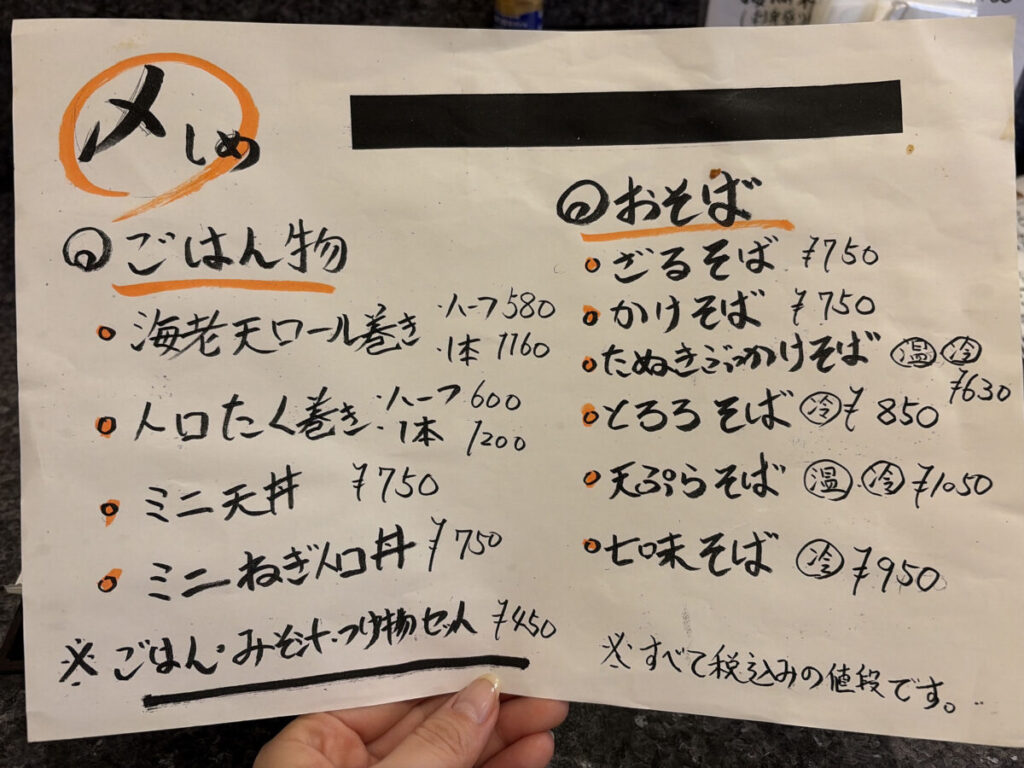 〆しめ
◎ごはん物
海老天ロール巻き ・ハーフ 580
・1本 1160
トロたく巻き ・ハーフ 600
・1本 1200
ミニ天丼 ¥750
ミニねぎトロ丼 ¥750
※ごはん・みそ汁・つけ物セット ¥450
◎おそば
ざるそば ¥750
かけそば ¥750
たぬきぶっかけそば 温 冷
¥630
とろろそば 冷 ¥850
天ぷらそば 温・冷 ¥1050
七味そば 冷 ¥950
※すべて税込みの値段です。